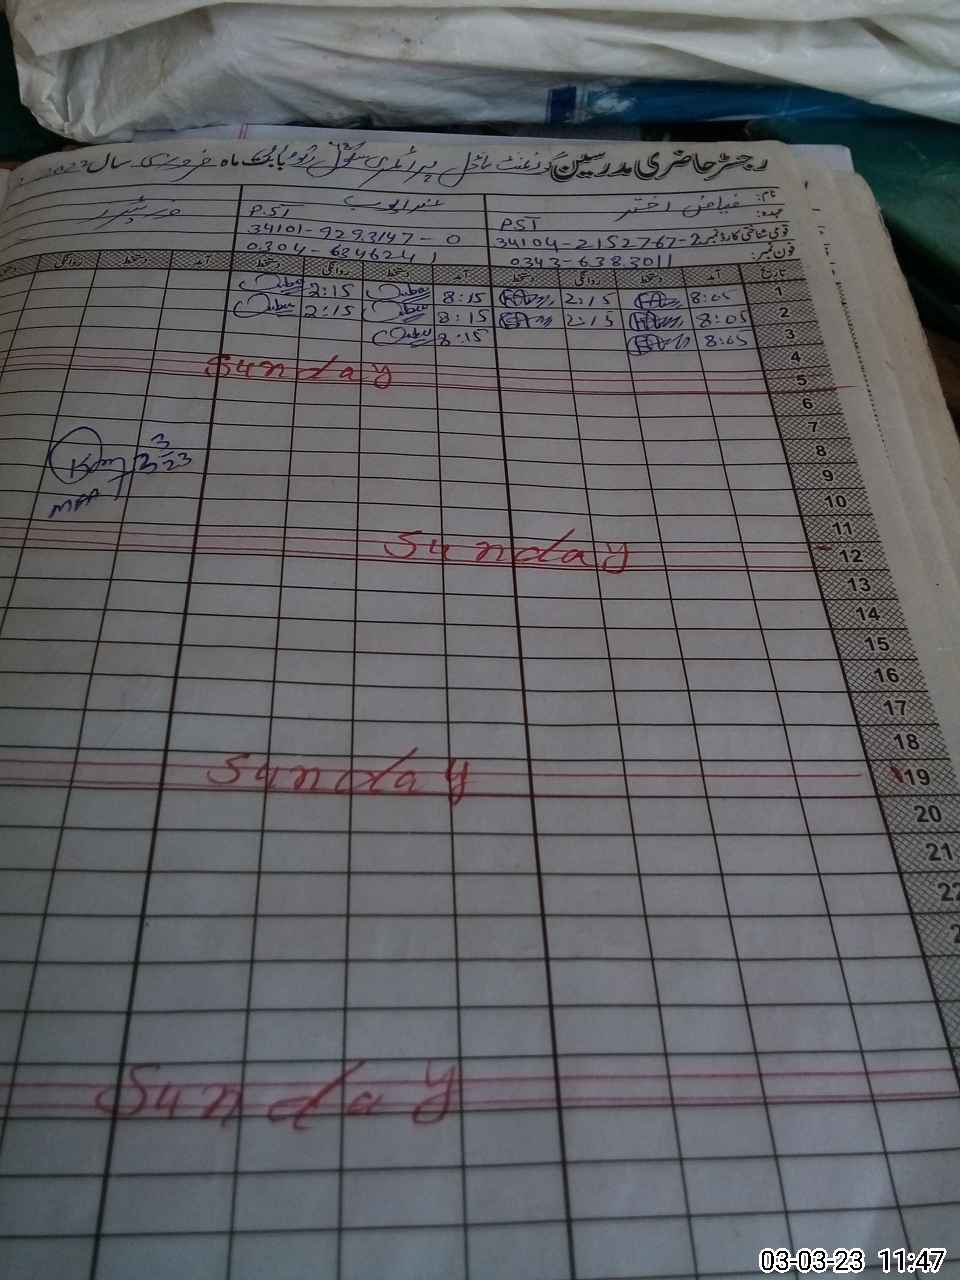 رجسٹر حاضری مدرسین گورنمنٹ ماڈل پرائمری سکول ماہ فروری سال 2023
نام: فیاض اختر
عہدہ: PST P.ST
قومی شناختی کارڈ نمبر: 34104-2152767-2 34101-9293147-0
فون نمبر: 0343-6383011 0304-6346241
تاریخ آمد دستخط روانگی دستخط آمد دستخط روانگی دستخط آمد دستخط روانگی
1 8:05 2:15 8:15 2:15
2 8:05 2:15 8:15 2:15
3 8:05 8:15
4
5 Sunday
6
7
8
9
10
11
12 Sunday
13
14
15
16
17
18
19 Sunday
20
21
22
Sunday
3-3-23
MEA
03-03-23 11:47